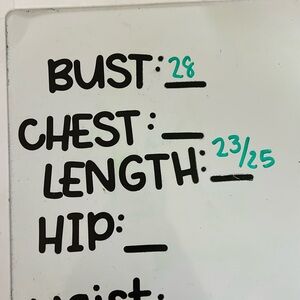 BUST: 28
CHEST:
LENGTH: 23/25
HIP:
waist: